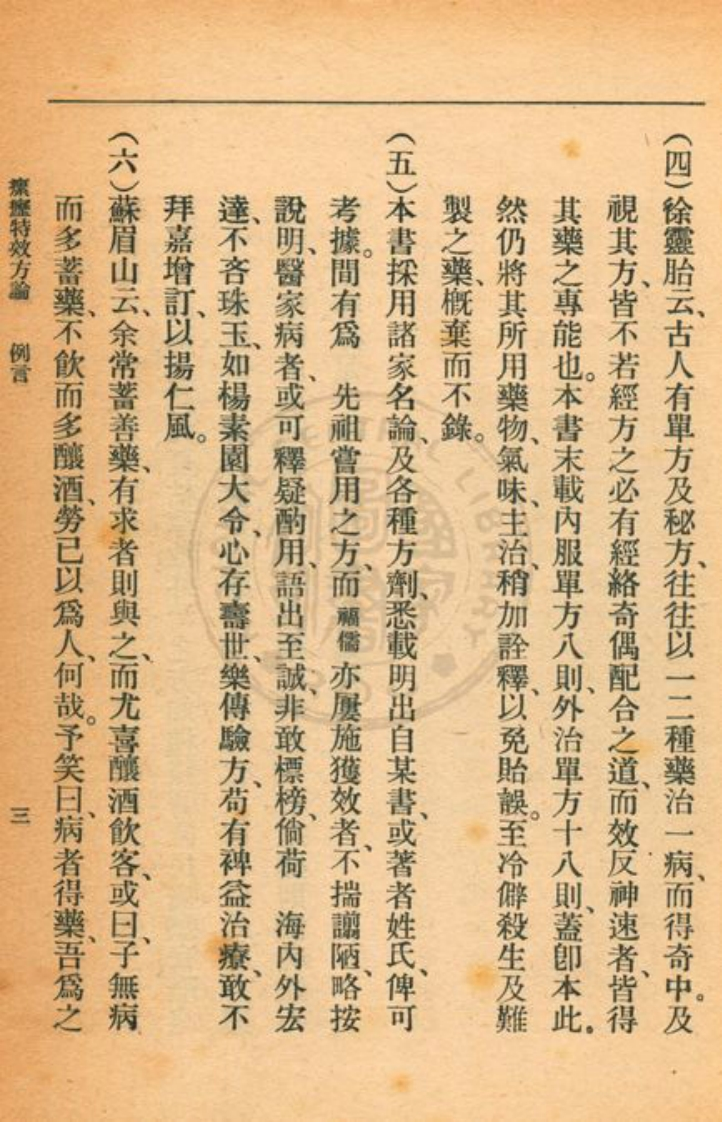 （四）徐靈胎云、古人有單方及秘方、往往以一二種藥治一病、而得奇中。及
視其方、皆不若經方之必有經絡奇偶配合之道、而效反神速者、皆得
其藥之專能也。本書末載內服單方八則、外治單方十八則、蓋卽本此。
然仍將其所用藥物、氣味、主治、稍加詮釋、以免貽誤。至冷僻殺生及難
製之藥、槪棄而不錄。
（五）本書採用諸家名論、及各種方劑、悉載明出自某書、或著者姓氏、俾可
考據。間有爲　先祖嘗用之方、而福儒亦屢施獲效者、不揣譾陋、略按
說明、醫家病者、或可釋疑酌用、語出至誠、非敢標榜、倘荷　海內外宏
達、不吝珠玉、如楊素園大令、心存壽世、樂傳驗方、苟有裨益治療、敢不
拜嘉增訂、以揚仁風。
（六）蘇眉山云、余常蓄善藥、有求者則與之、而尤喜釀酒飲客、或曰、子無病
而多蓄藥、不飮而多釀酒、勞已以爲人、何哉。予笑曰、病者得藥、吾爲之
瘰癧特效方論　例言
三